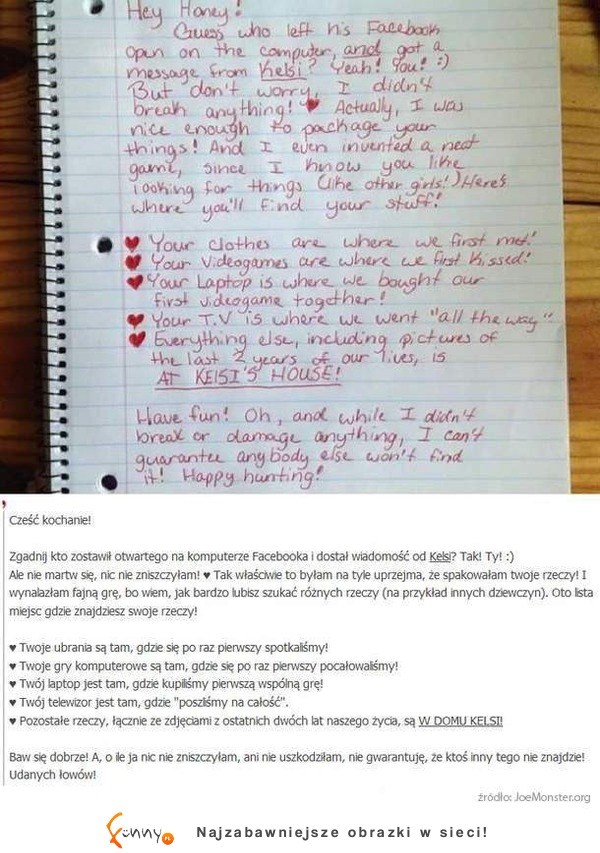 Hey Honey!
Guess who left his Facebook
open on the computer, and got a
message from Kelsi? Yeah! You! :)
But don't worry, I didn't
break anything! ♥ Actually, I was
nice enough to package your
things! And I even invented a neat
game, since I know you like
looking for things (like other girls!) Here's
where you'll find your stuff!
♥ Your clothes are where we first met!
♥ Your videogames are where we first kissed!
♥ Your Laptop is where we bought our
first videogame together!
♥ Your T.V is where we went "all the way".
♥ Everything else, including pictures of
the last 2 years of our lives, is
AT KElSI'S HOUSE!
Have fun! Oh, and while I didn't
break or damage anything, I can't
guarantee anybody else won't find
it! Happy hunting!
Cześć kochanie!
Zgadnij kto zostawił otwartego na komputerze Facebooka i dostał wiadomość od Kelsi? Tak! Ty! :)
Ale nie martw się, nic nie zniszczyłam! ♥ Tak właściwie to byłam na tyle uprzejma, że spakowałam twoje rzeczy! I
wynalazłam fajną grę, bo wiem, jak bardzo lubisz szukać różnych rzeczy (na przykład innych dziewczyn). Oto lista
miejsc gdzie znajdziesz swoje rzeczy!
♥ Twoje ubrania są tam, gdzie się po raz pierwszy spotkaliśmy!
♥ Twoje gry komputerowe są tam, gdzie się po raz pierwszy pocałowaliśmy!
♥ Twój laptop jest tam, gdzie kupiliśmy pierwszą wspólną grę!
♥ Twój telewizor jest tam, gdzie "poszliśmy na całość".
♥ Pozostałe rzeczy, łącznie ze zdjęciami z ostatnich dwóch lat naszego życia, są W DOMU KELSI!
Baw się dobrze! A, o ile ja nic nie zniszczyłam, ani nie uszkodziłam, nie gwarantuję, że ktoś inny tego nie znajdzie!
Udanych łowów!
źródło: JoeMonster.org
Funny.PL Najzabawniejsze obrazki w sieci!